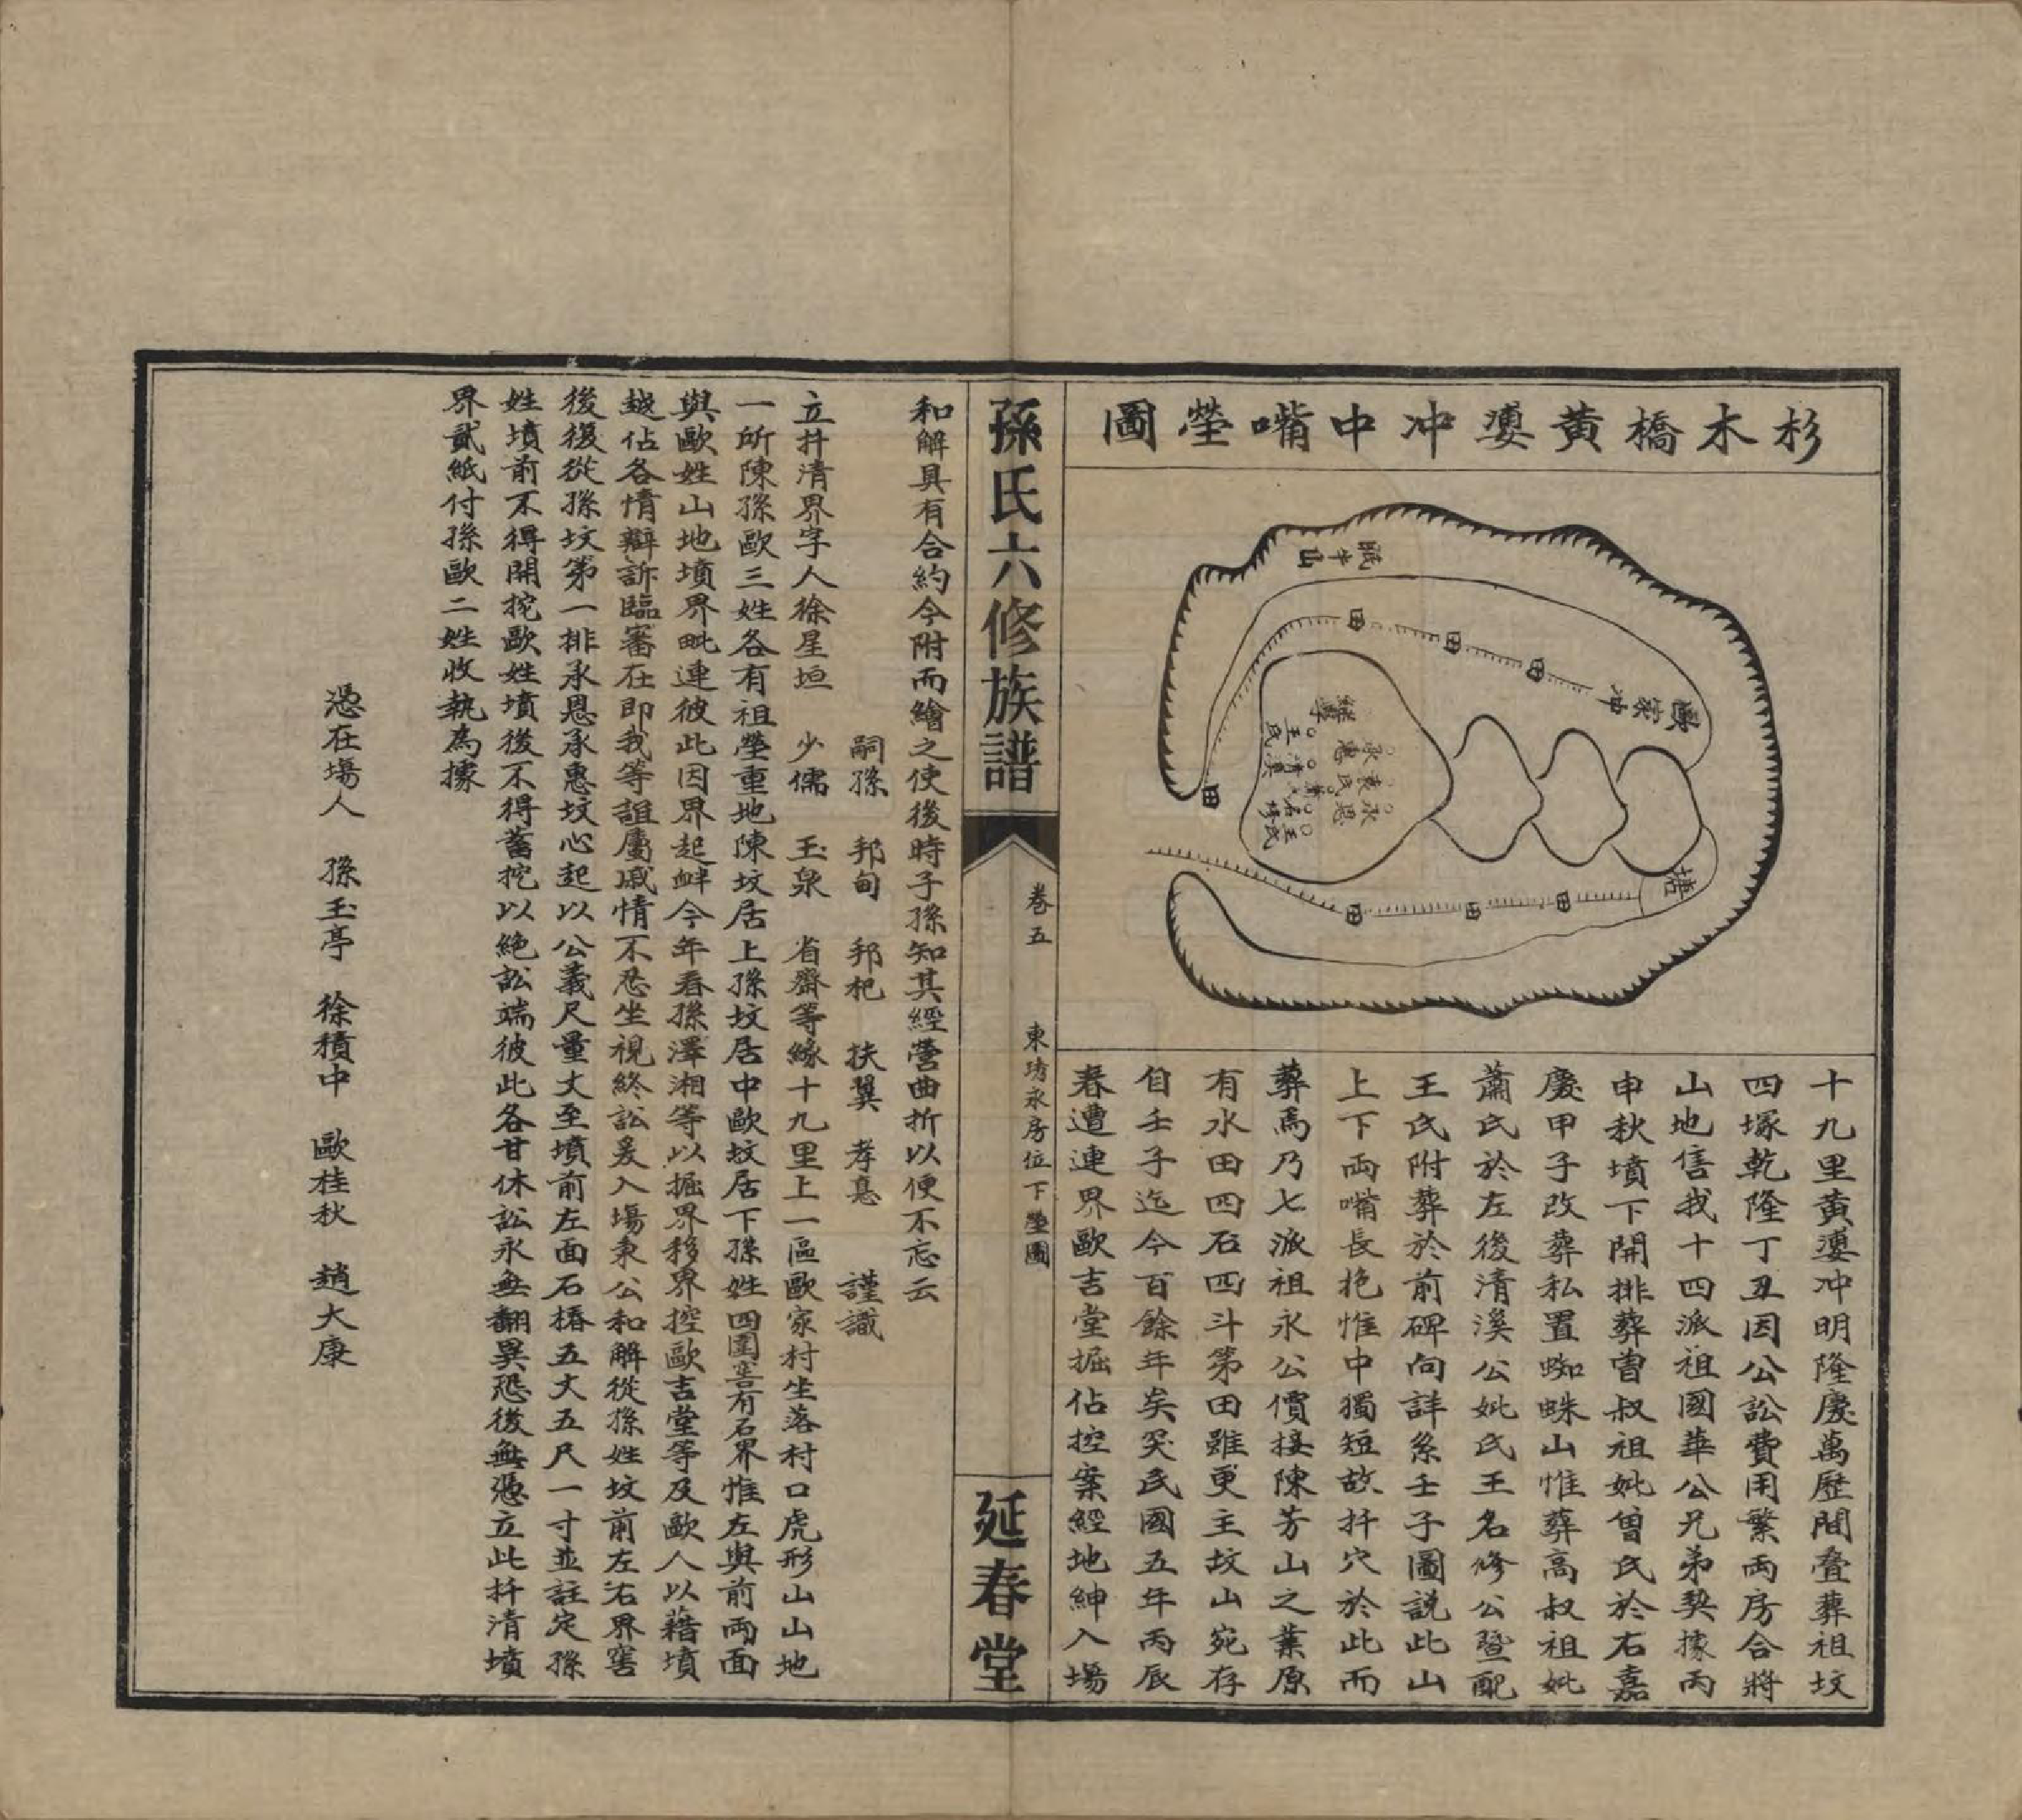 杉木橋黄㵎冲中嘴塋圖
眠牛山
歐家冲
田
田
田
田
塘
田
田
田
十九里黄㵎冲明隆慶萬歷間叠葬祖坟
四塚乾隆丁丑因公訟費用繁兩房合將
山地售我十四派祖國華公兄弟契據丙
申秋墳下開排葬曾叔祖妣曾氏於右嘉
慶甲子改葬私置蜘蛛山惟葬高叔祖妣
蕭氏於左後清溪公妣氏王名修公暨配
王氏附葬於前碑向詳糸壬子圖説此山
上下両嘴長抱惟中獨短故扦穴於此而
葬焉乃七派祖永公價接陳芳山之業原
有水田四石四斗第田雖更主坟山宛存
自壬子迄今百餘年矣突民國五年丙辰
春遭連界歐吉堂掘佔控案經地紳入場
孫氏六修族譜
卷五
東琇永房位下塋圖
延春堂
和解具有合約今附而繪之使後時子孫知其經營曲折以便不忘云
嗣孫 邦甸 邦杞 扶翼 孝惪 謹識
立扦清界字人徐星垣 少儒 玉泉 省齋等緣十九里上一區歐家村坐落村口虎形山山地
一所陳孫歐三姓各有祖塋重地陳坟居上孫坟居中歐坟居下孫姓四圍窖有石界惟左與前両面
與歐姓山地墳界毗連彼此因界起衅今年春孫澤湘等以掘界移界控歐吉堂等及歐人以藉墳
越佔各情辯訴臨審在即我等誼屬戚情不忍坐視終訟爰入塲秉公和解從孫姓坟前左右界窖
後復從孫坟第一排承恩承惠坟心起以公義尺量丈至墳前左面石樁五丈五尺一寸並註定孫
姓墳前不得開挖歐姓墳後不得蓄挖以絶訟端彼此各甘休訟永無翻異恐後無憑立此扦清墳
界貳紙付孫歐二姓收執為據
憑在塲人 孫玉亭 徐積中 歐桂秋 趙大康